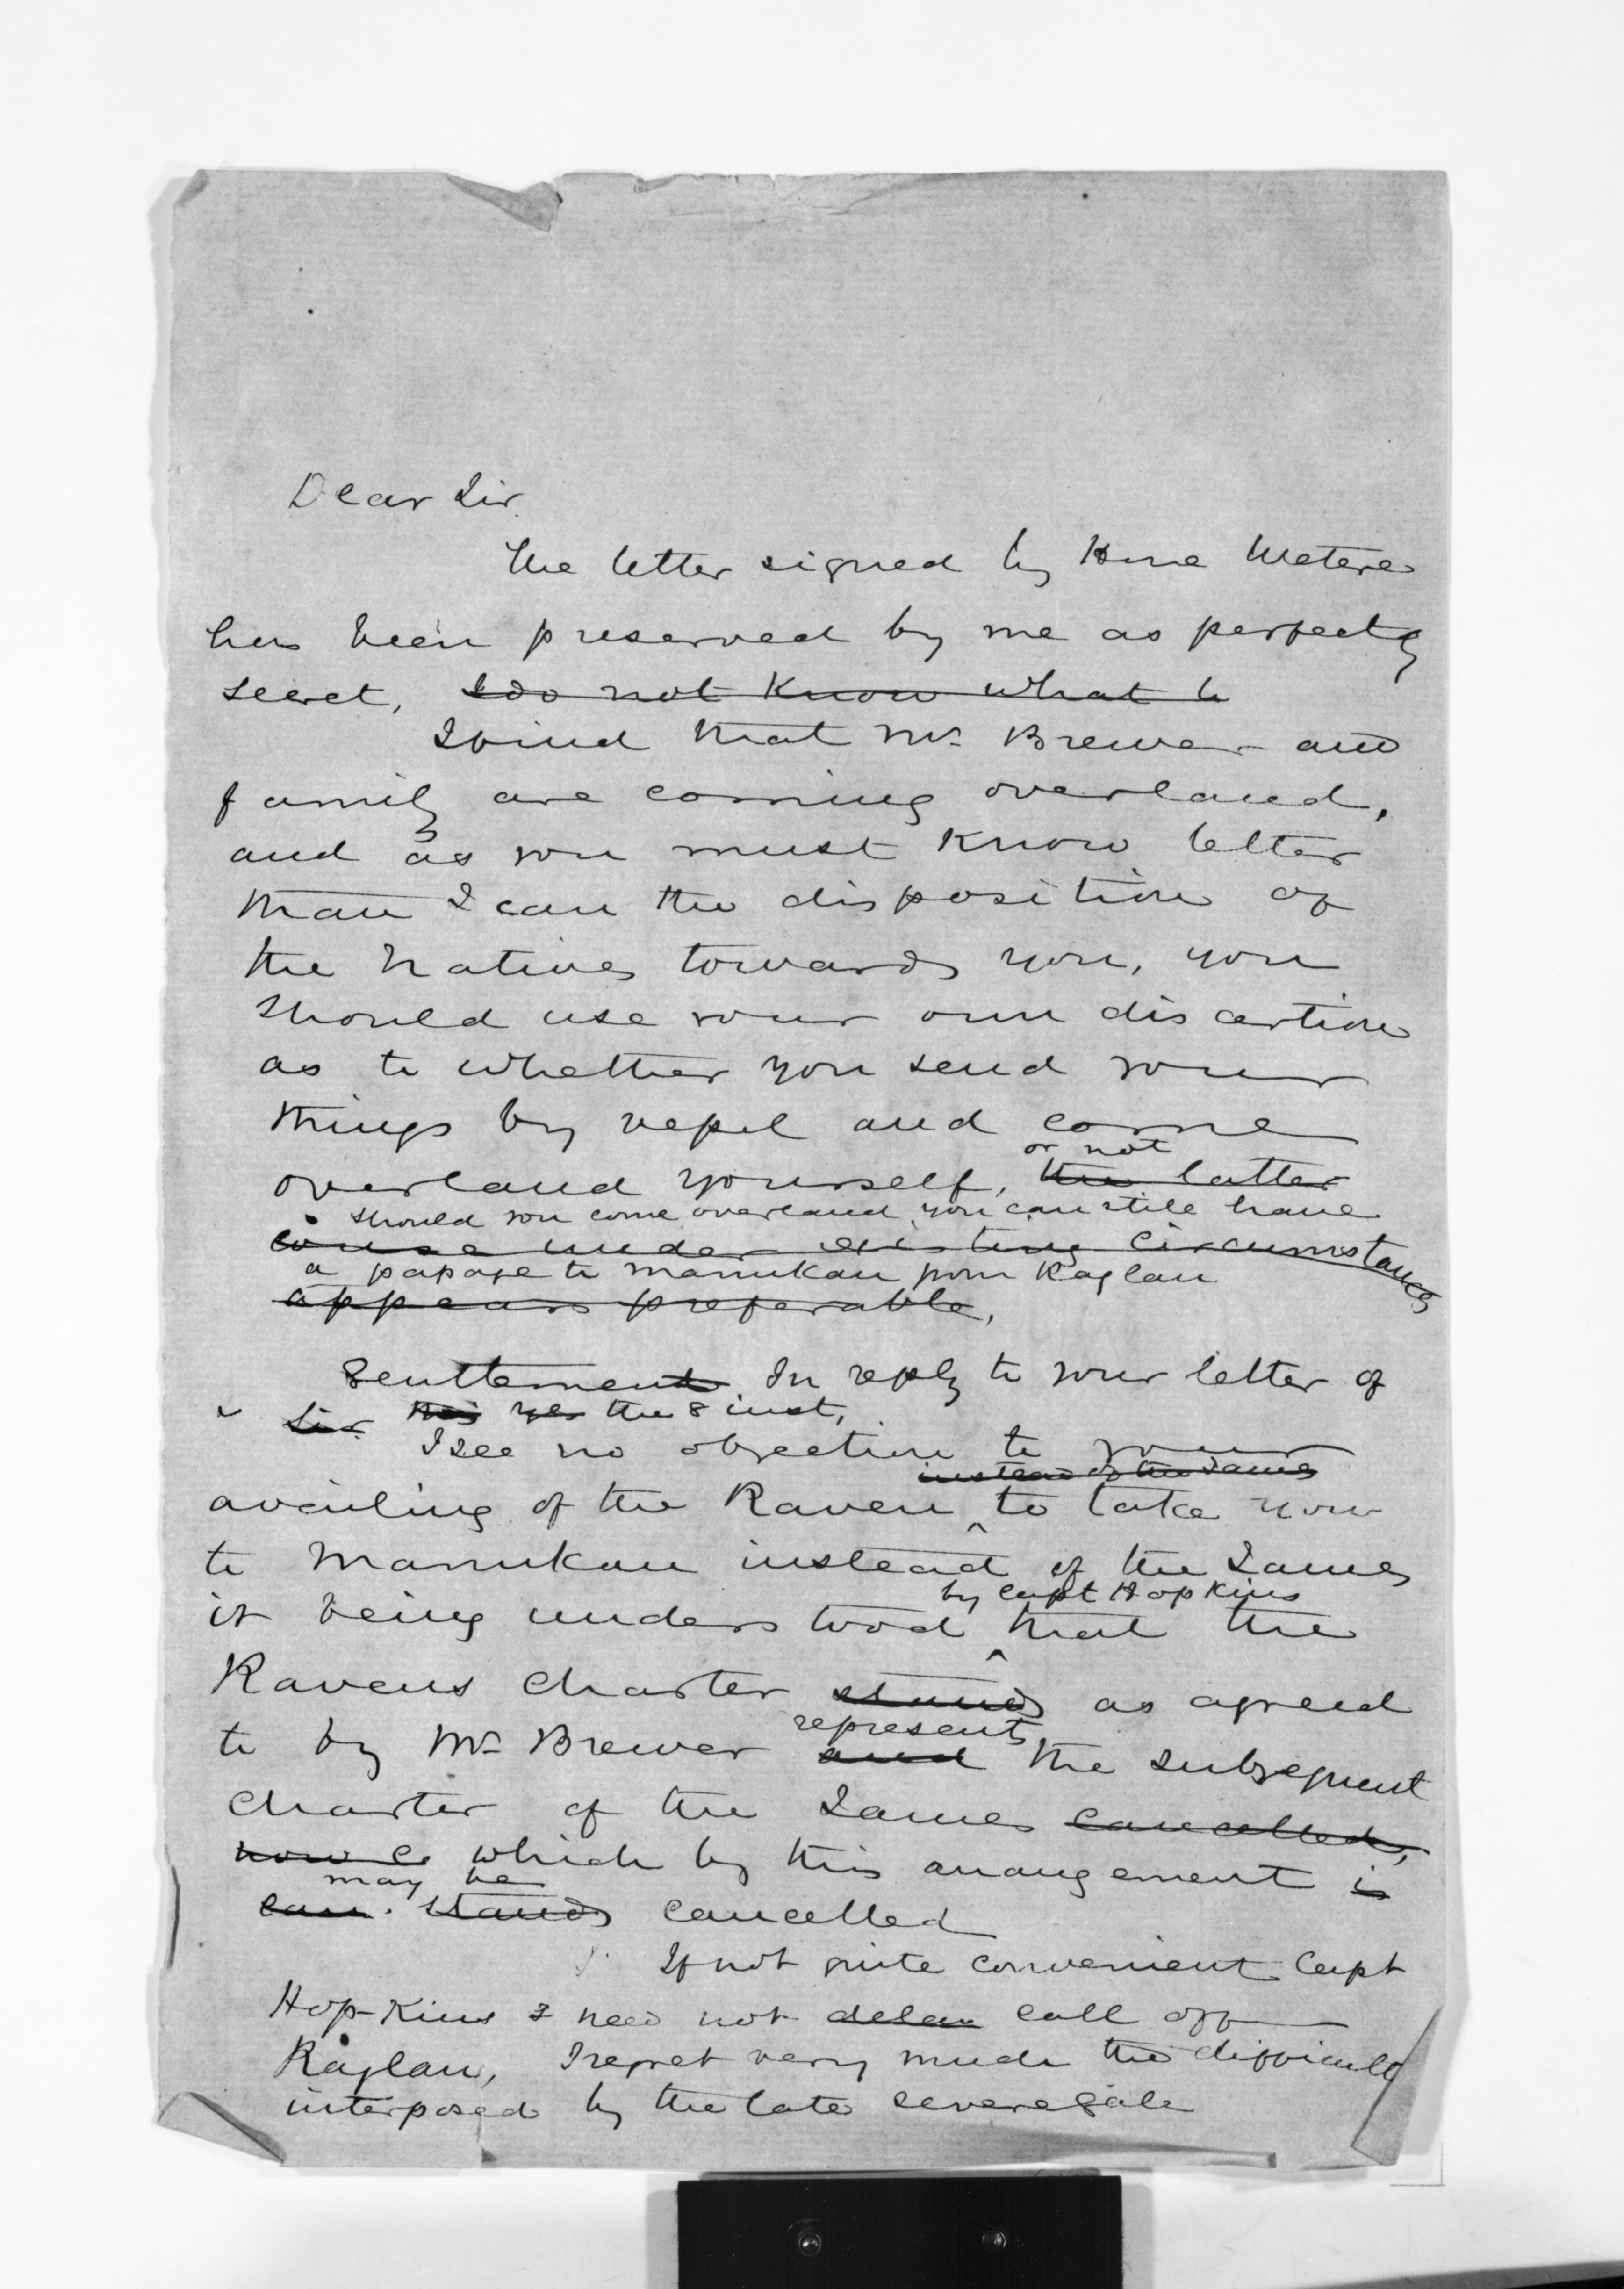 Dear Sir
The letter signed by Hone Wetere
has been preserved by me as perfectly
secret, I do not know what to
I find that Mr Brewer and
family are coming overland,
and as you must know better
than I can the disposition of
the Natives towards you, you
should use your own discertion
as to whether you send your
things by vessel and come
or not
overland yourself, the latter
should you come overland you can still have
course under existing circumstances
a passage to Manukau from Raglan
appears preferable,
Genttement In reply to your letter of
Sir this yes the 8 inst,
I see no objection to your
instead of the James
availing of the Raven to take you
to Manukau instead of the James
by Capt Hopkins
it being understood that the
Ravens Charter stands as agreed
represents
to by Mr Brewer and the subsequent
charter of the James cancelled,
now c which by this arrangement is
may be
can. stands cancelled
If not quite convenient Capt
Hop-Kins need not delay call off
Raglan, I regret very much the difficult
interposed by the late severe gale